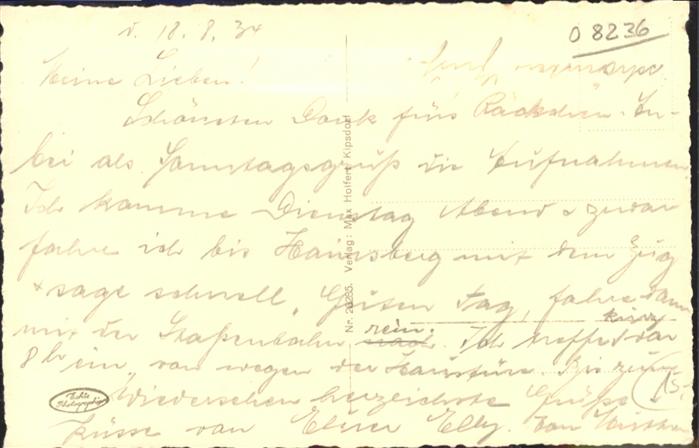 d. 18.8.34
08236
Meine Lieben!
Schönsten Dank fürs Päckchen. An-
bei als Sonntagsgruß die Aufnahmen
Ich komme Dienstag Abend & zwar
fahre ich bis Hainsberg mit dem Zug
+ sage schnell „Guten Tag, fahre dann
mit der Straßenbahn rein. Ich treffe kurz vor
8h ein, von wegen der Haustüre. Bis zum
Wiedersehen herzlichste Grüße
Küsse von Eurer Elly.
Echte Photographie
Nr. Verlag: Max Holfert, Kipsdorf
15.-